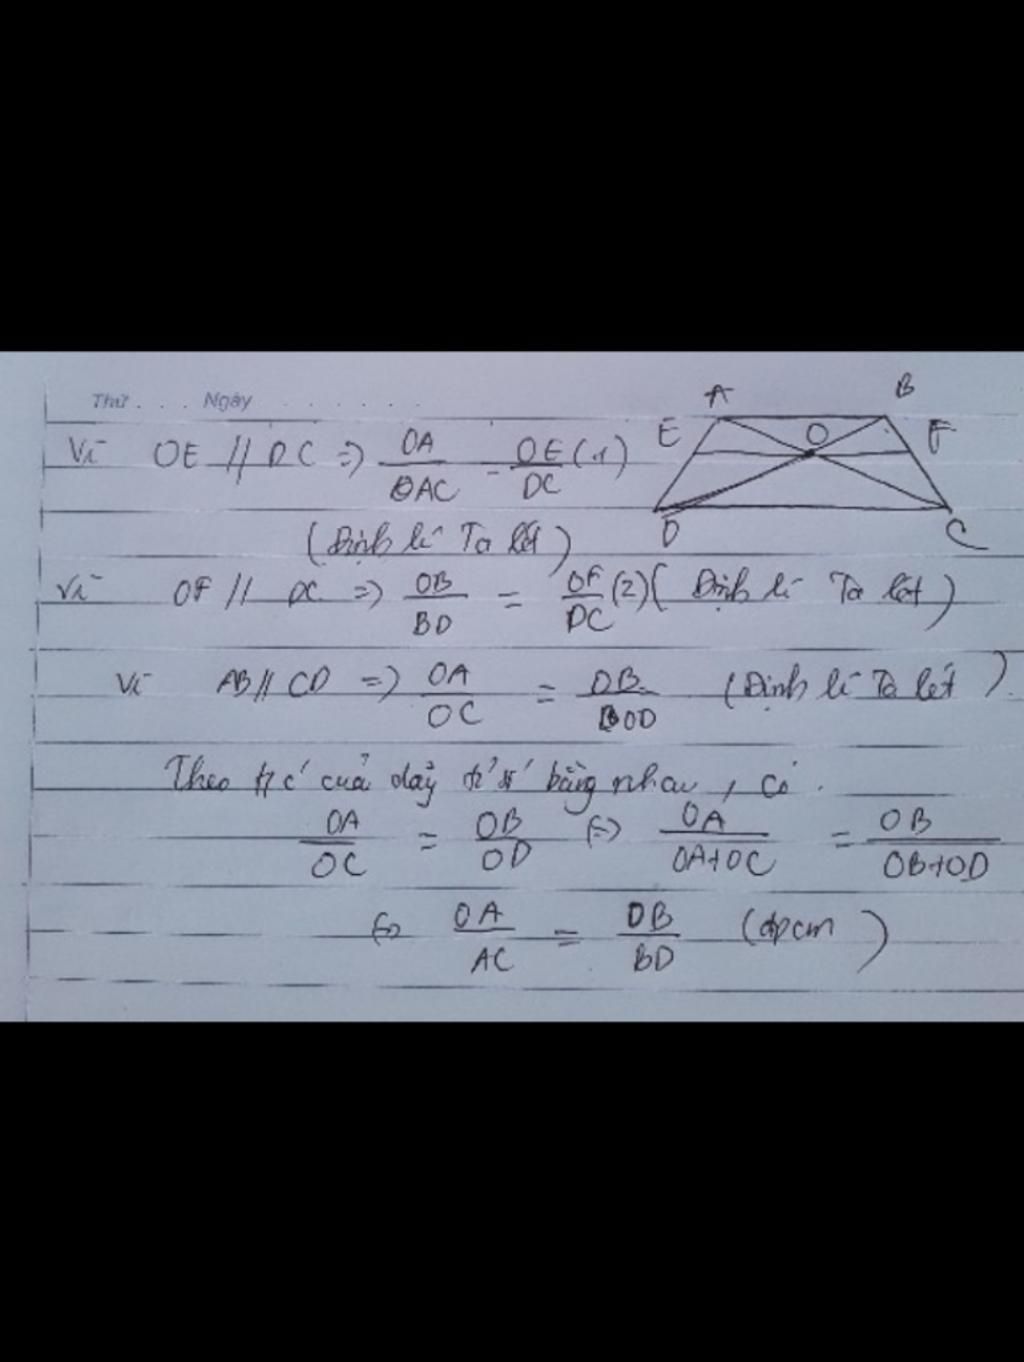 Thứ . . . Ngày . . . . . . .
A B
E O F
D C
Vì OE // DC => OA/OAC = OE/DC (1)
(Định lí Ta lét)
Vì OF // DC => OB/BD = OF/DC (2) (Định lí Ta lét)
Vì AB // CD => OA/OC = OB/BOD (Định lí Ta lét).
Theo t/c của dãy tỉ số bằng nhau, có.
OA/OC = OB/OD <=> OA/OA+OC = OB/OB+OD
<=> OA/AC = OB/BD (đpcm)